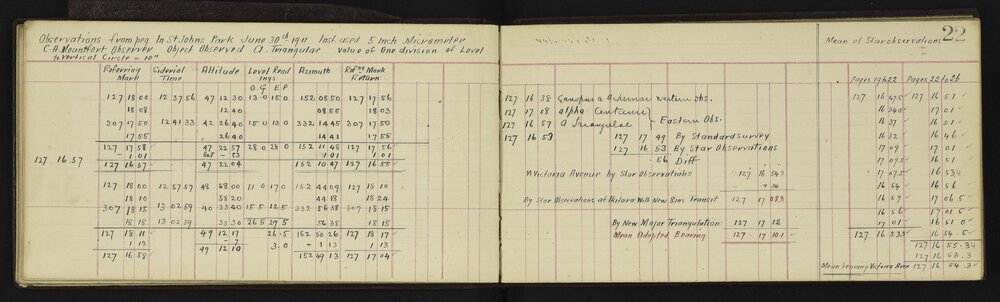 Observations from peg In St Johns Park June 30th 1911 Inst used 5 Inch Micrometer
C.A. Mountfort Observer Object Observed Triangulae value of One division of Level
& Vertical Circle = 10"
Referring Mark Siderial Time Altitude Level Read ings Azimuth Refng Mark Return
O.G E.P
127 18 00 12 37 56 47 12 30 13.0 15.0 152 08 50 127 17 56
18 08 12 40 08 55 18 03
307 17 50 12 41 33 42 26 40 15.0 13.0 332 14 45 307 17 50
17 55 26 40 14 41 17 55
127 17 58 47 22 57 28.0 28.0 152 11 48 127 17 56
- 1 01 Ref - 53 - 1 01 1 01
127 16 57 127 16 57 47 22 04 152 10 47 127 16 55
127 18 00 12 57 57 48 58 00 11.0 17.0 152 44 09 127 18 10
18 10 58 20 44 18 18 24
307 18 15 13 02 59 40 33 40 15.5 12.5 332 56 38 307 18 15
18 18 13 02 59 33 30 26.5 29.5 56 35 18 18
127 18 11 49 12 17 26.5 152 50 26 127 18 17
1 13 - 7 3.0 - 1 13 1 13
127 16 58 49 12 10 152 49 13 127 17 04
22
Mean of Star observations
127 16 38 western Obs.
127 17 08 alpha Centauri
127 16 57 Eastern Obs.
127 16 53
127 17 49 By Standard Survey
127 16 53 By Star Observations
.56 Diff
Victoria Avenue by Star Observations 127 16 54.3
By Star Observations at With New 8ins Transit 127 17 08.3
By New Major Triangulation 127 17 12
Mean Adopted Bearing 127 17 10.1
Pages 19 to 22 Pages 22 to 26
127 16 47.5 127 16 51
16 34.0 17 01
16 37 16 51
16 32 16 46
17 09 17 01
17 02 16 51
17 07.5 16 53.4
16 54 16 56
16 57 17 06.5
16 56 17 01.5
17 01 16 51.0
127 16 53.5 16 54.5
127 16 55.84
127 16 53.3
Mean Bearing Victoria Aven 127 16 54.3